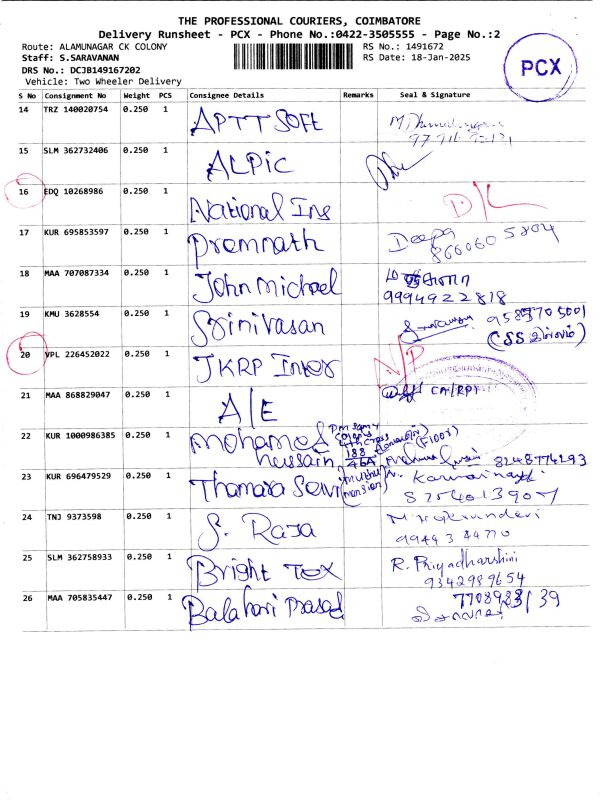 THE PROFESSIONAL COURIERS, COIMBATORE
Delivery Runsheet - PCX - Phone No.:0422-3505555 - Page No.:2
Route: ALAMUNAGAR CK COLONY
RS No.: 1491672
Staff: S.SARAVANAN
RS Date: 18-Jan-2025
DRS No.: DCJB149167202
Vehicle: Two Wheeler Delivery
PCX
S No Consignment No Weight PCS Consignee Details Remarks Seal & Signature
14 TRZ 140020754 0.250 1 APTT SOFT
15 SLM 362732406 0.250 1 ALPIC
16 EDQ 10268986 0.250 1 National Ins D/L
17 KUR 695853597 0.250 1 Premnath Deepa
8660605804
18 MAA 707087334 0.250 1 John Michael
9994922818
19 KMU 3628554 0.250 1 Srinivasan
20 VPL 226452022 0.250 1 JKRP Inter NP
21 MAA 868829047 0.250 1 A/E
22 KUR 1000986385 0.250 1 Mohamed Hussain 8248774293
23 KUR 696479529 0.250 1 Thamarai Selvi
8754013907
24 TNJ 9373598 0.250 1 S. Raja
9944344770
25 SLM 362758933 0.250 1 Bright Tex R. Priyadharshini
9342989654
26 MAA 705835447 0.250 1 Balahari Prasad